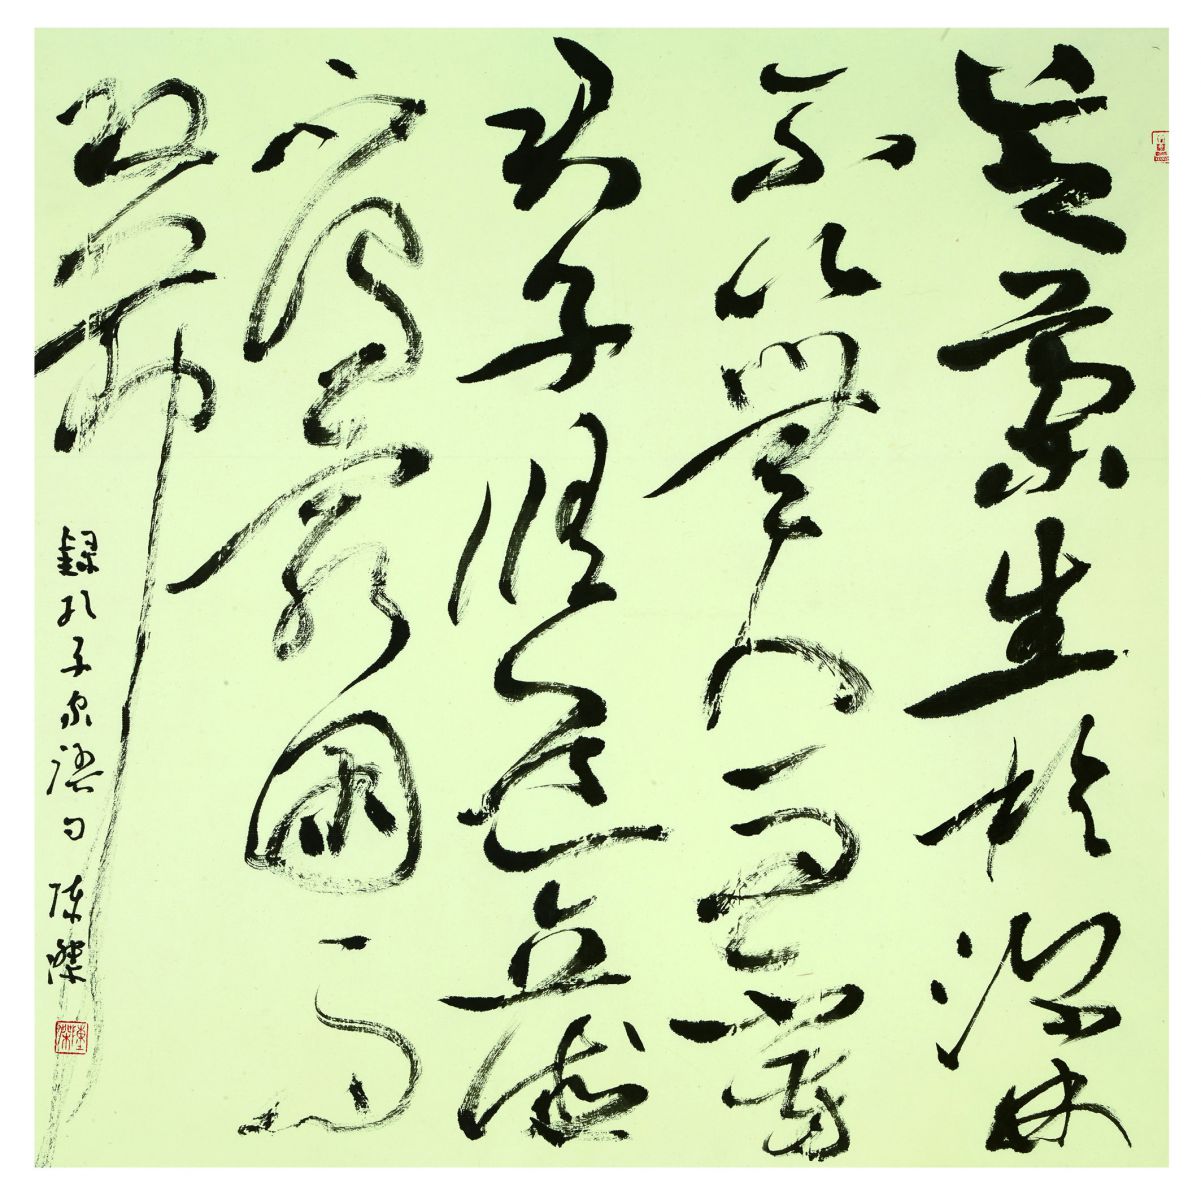 芝蘭生於深林
不以無人而不芳
君子修道立德
不為窮困而
改節
錄孔子家語句 陳傑